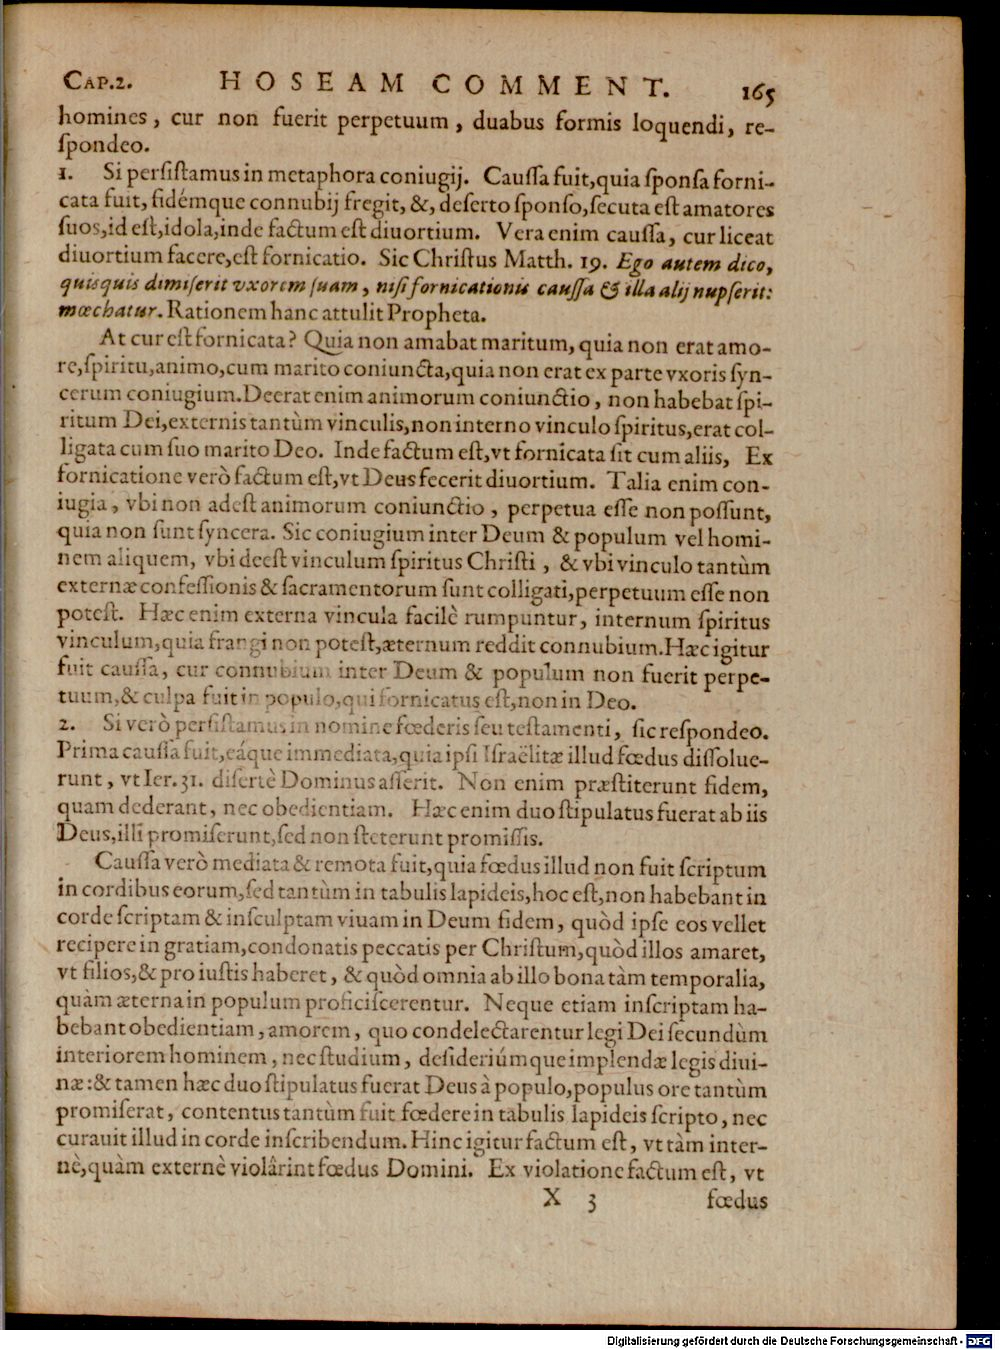 CAP.2. HOSEAM COMMENT. 165
homines, cur non fuerit perpetuum, duabus formis loquendi, re-
ſpondeo.
1. Si perſiſtamus in metaphora coniugij. Cauſſa fuit, quia ſponſa forni-
cata fuit, fidémque connubij fregit, &, deſerto ſponſo, ſecuta eſt amatores
ſuos, id eſt, idola, inde factum eſt diuortium. Vera enim cauſſa, cur liceat
diuortium facere, eſt fornicatio. Sic Chriſtus Matth. 19. Ego autem dico,
quisquis dimiſerit vxorem ſuam, niſi fornicationis cauſſa & illa alij nupſerit:
mœchatur. Rationem hanc attulit Propheta.
At cur eſt fornicata? Quia non amabat maritum, quia non erat amo-
re, ſpiritu, animo, cum marito coniuncta, quia non erat ex parte vxoris ſyn-
cerum coniugium. Deerat enim animorum coniunctio, non habebat ſpi-
ritum Dei, externis tantùm vinculis, non interno vinculo ſpiritus, erat col-
ligata cum ſuo marito Deo. Inde factum eſt, vt fornicata ſit cum aliis, Ex
fornicatione verò factum eſt, vt Deus fecerit diuortium. Talia enim con-
iugia, vbi non adeſt animorum coniunctio, perpetua eſſe non poſſunt,
quia non ſunt ſyncera. Sic coniugium inter Deum & populum vel homi-
nem aliquem, vbi deeſt vinculum ſpiritus Chriſti, & vbi vinculo tantùm
externæ confeſſionis & ſacramentorum ſunt colligati, perpetuum eſſe non
poteſt. Hæc enim externa vincula facilè rumpuntur, internum ſpiritus
vinculum, quia frangi non poteſt, æternum reddit connubium. Hæc igitur
fuit cauſſa, cur connubium inter Deum & populum non fuerit perpe-
tuum, & culpa fuit in populo, qui fornicatus eſt, non in Deo.
2. Si verò perſiſtamus in nomine fœderis ſeu teſtamenti, ſic reſpondeo.
Prima cauſſa fuit, eáque immediata, quia ipſi Iſraëlitæ illud fœdus diſſolue-
runt, vt Ier. 31. diſertè Dominus aſſerit. Non enim præſtiterunt fidem,
quam dederant, nec obedientiam. Hæc enim duo ſtipulatus fuerat ab iis
Deus, illi promiſerunt, ſed non ſteterunt promiſſis.
Cauſſa verò mediata & remota fuit, quia fœdus illud non fuit ſcriptum
in cordibus eorum, ſed tantùm in tabulis lapideis, hoc eſt, non habebant in
corde ſcriptam & inſculptam viuam in Deum fidem, quòd ipſe eos vellet
recipere in gratiam, condonatis peccatis per Chriſtum, quòd illos amaret,
vt filios, & pro iuſtis haberet, & quòd omnia ab illo bona tàm temporalia,
quàm æterna in populum proficiſcerentur. Neque etiam inſcriptam ha-
bebant obedientiam, amorem, quo condelectarentur legi Dei ſecundùm
interiorem hominem, nec ſtudium, deſideriúmque implendæ legis diui-
næ: & tamen hæc duo ſtipulatus fuerat Deus à populo, populus ore tantùm
promiſerat, contentus tantùm fuit fœdere in tabulis lapideis ſcripto, nec
curauit illud in corde inſcribendum. Hinc igitur factum eſt, vt tàm inter-
nè, quàm externè violârint fœdus Domini. Ex violatione factum eſt, vt
X 3 fœdus
Digitalisierung gefördert durch die Deutsche Forschungsgemeinschaft - DFG